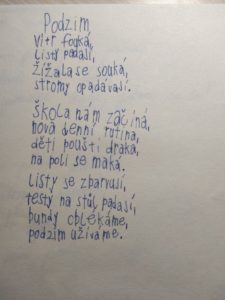 Podzim
vítr fouká,
listy padasí,
žížala se souká,
stromy opadávasí.
škola nám začíná,
nová denní rutina,
děti pouští draka,
na poli se maká.
listy se zbarvusí,
testy na stůl padasí,
bundy oblékáme,
podzim užíváme.